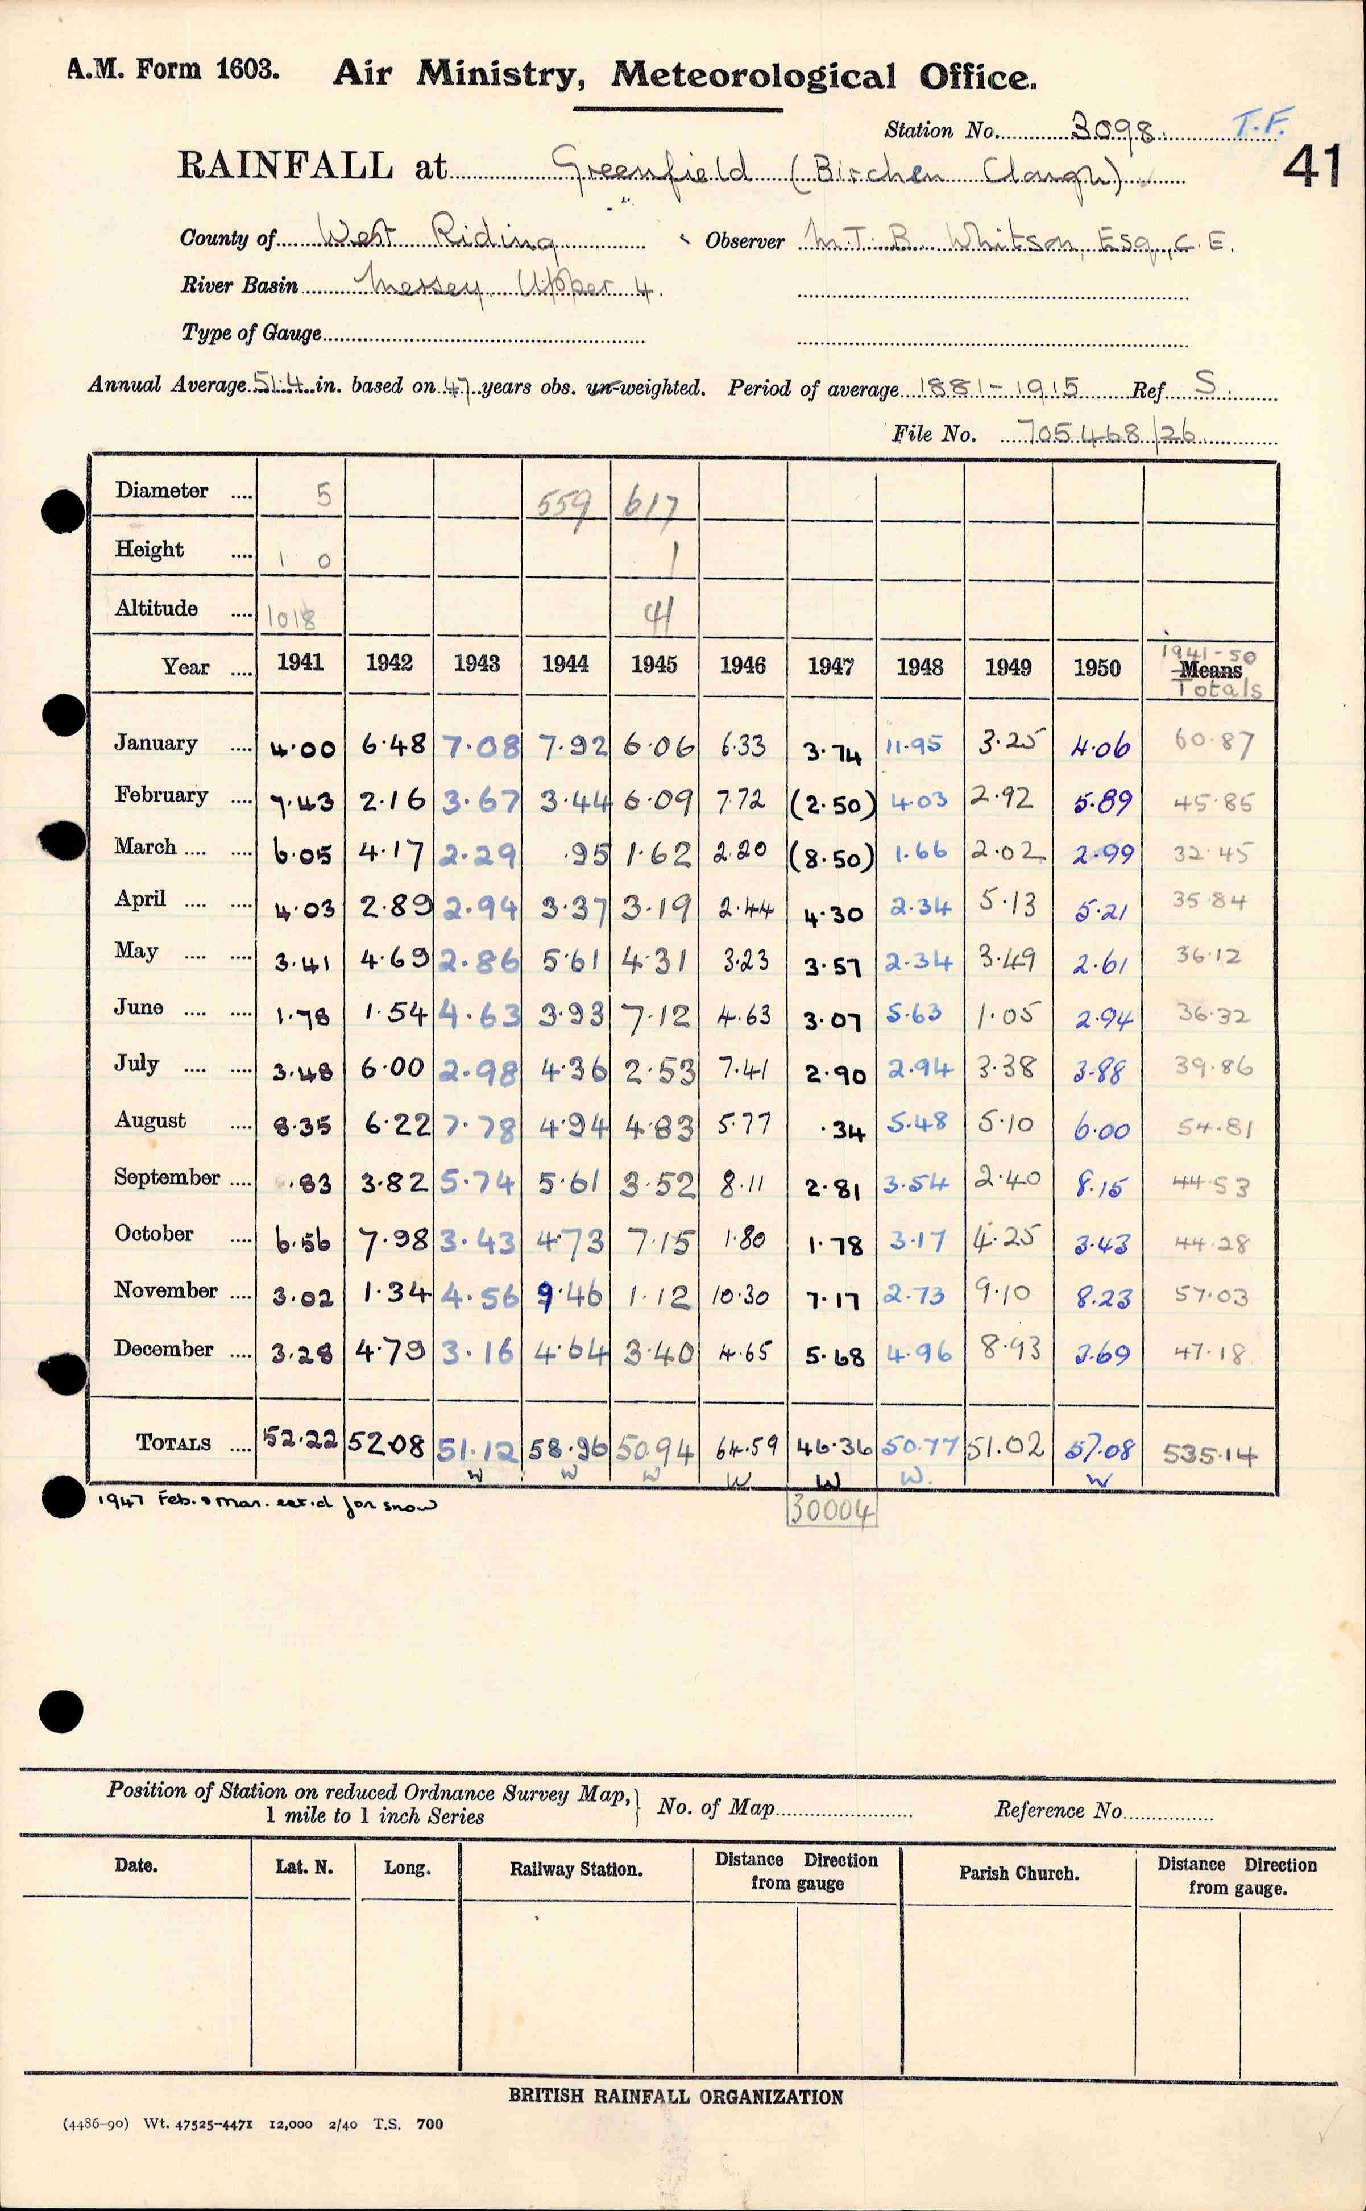 A.M. Form 1603. Air Ministry, Meteorological Office.
Station No. 3098. T.F.
41
RAINFALL at Greenfield (Birchen Clough)
County of West Riding Observer M.T.B. Whitson, Esq., C.E.
River Basin Mersey Upper 4.
Type of Gauge
Annual Average 51.4 in. based on 47 years obs. un-weighted. Period of average 1881-1915 Ref S.
File No. 705468/26
Diameter .... 5 559 617
Height .... 1 0 1
Altitude .... 1018 41
Year .... 1941 1942 1943 1944 1945 1946 1947 1948 1949 1950 1941-50 Means Totals
January .... 4.00 6.48 7.08 7.92 6.06 6.33 3.74 11.95 3.25 4.06 60.87
February .... 7.43 2.16 3.67 3.44 6.09 7.72 (2.50) 4.03 2.92 5.89 45.85
March .... .... 6.05 4.17 2.29 .95 1.62 2.20 (8.50) 1.66 2.02 2.99 32.45
April .... .... 4.03 2.89 2.94 3.37 3.19 2.44 4.30 2.34 5.13 5.21 35.84
May .... .... 3.41 4.69 2.86 5.61 4.31 3.23 3.57 2.34 3.49 2.61 36.12
June .... .... 1.78 1.54 4.63 3.93 7.12 4.63 3.07 5.63 1.05 2.94 36.32
July .... .... 3.48 6.00 2.98 4.36 2.53 7.41 2.90 2.94 3.38 3.88 39.86
August .... 8.35 6.22 7.78 4.94 4.83 5.77 .34 5.48 5.10 6.00 54.81
September .... .83 3.82 5.74 5.61 3.52 8.11 2.81 3.54 2.40 8.15 44.53
October .... 6.56 7.98 3.43 4.73 7.15 1.80 1.78 3.17 4.25 3.43 44.28
November .... 3.02 1.34 4.56 9.46 1.12 10.30 7.17 2.73 9.10 8.23 57.03
December .... 3.28 4.79 3.16 4.64 3.40 4.65 5.68 4.96 8.93 3.69 47.18
TOTALS .... 52.22 52.08 51.12 58.96 50.94 64.59 46.36 50.77 51.02 57.08 535.14
W W W W W W. W
1947 Feb. & Mar. est.d for snow 30004
Position of Station on reduced Ordnance Survey Map, 1 mile to 1 inch Series } No. of Map Reference No.
Date. Lat. N. Long. Railway Station. Distance Direction from gauge Parish Church. Distance Direction from gauge.
BRITISH RAINFALL ORGANIZATION
(4486-90) Wt. 47525-4471 12,000 2/40 T.S. 700